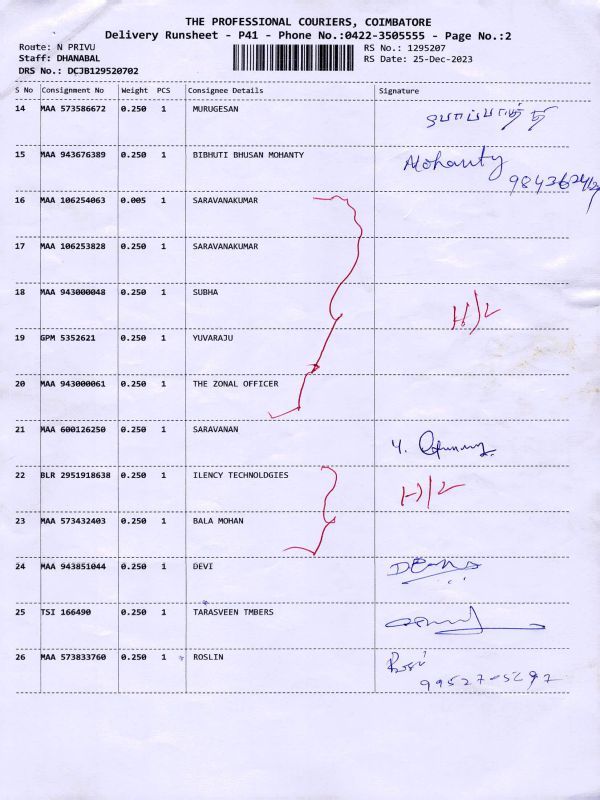 THE PROFESSIONAL COURIERS, COIMBATORE
Delivery Runsheet - P41 - Phone No.:0422-3505555 - Page No.:2
Route: N PRIVU
RS No.: 1295207
Staff: DHANABAL
RS Date: 25-Dec-2023
DRS No.: DCJB129520702
S No Consignment No Weight PCS Consignee Details Signature
14 MAA 573586672 0.250 1 MURUGESAN
15 MAA 943676389 0.250 1 BIBHUTI BHUSAN MOHANTY Mohanty
16 MAA 106254063 0.005 1 SARAVANAKUMAR
17 MAA 106253828 0.250 1 SARAVANAKUMAR
18 MAA 943000048 0.250 1 SUBHA H/L
19 GPM 5352621 0.250 1 YUVARAJU
20 MAA 943000061 0.250 1 THE ZONAL OFFICER
21 MAA 600126250 0.250 1 SARAVANAN
22 BLR 2951918638 0.250 1 ILENCY TECHNOLDGIES H/L
23 MAA 573432403 0.250 1 BALA MOHAN
24 MAA 943851044 0.250 1 DEVI
25 TSI 166490 0.250 1 TARASVEEN TMBERS
26 MAA 573833760 0.250 1 ROSLIN
99527-5297